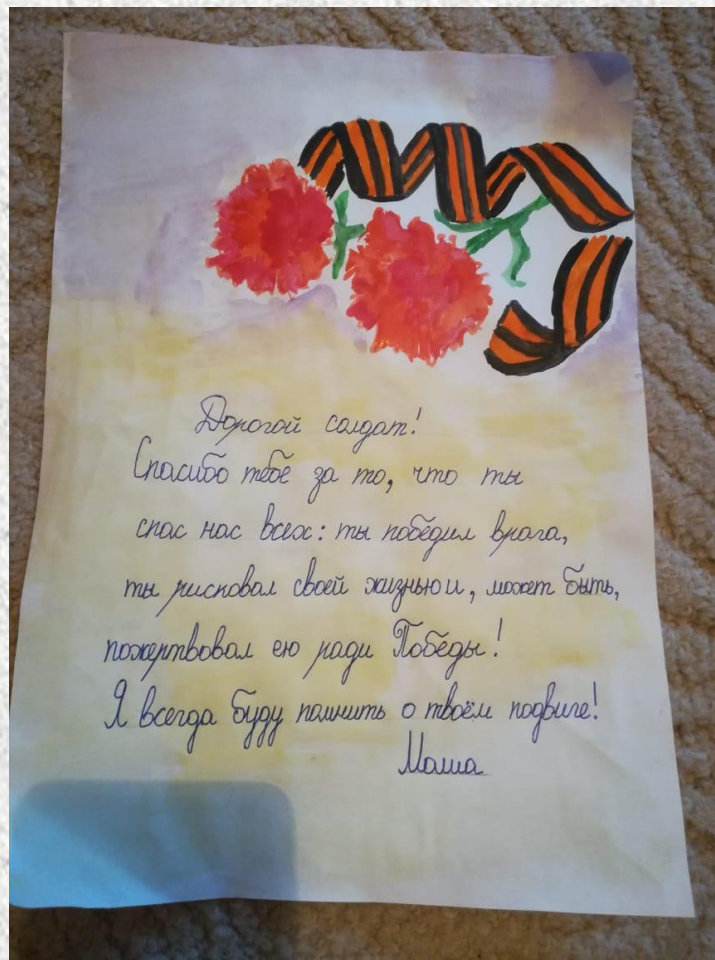 Дорогой солдат!
Спасибо тебе за то, что ты
спас нас всех: ты победил врага,
ты рисковал своей жизнью и, может быть,
пожертвовал ею ради Победы!
Я всегда буду помнить о твоём подвиге!
Маша